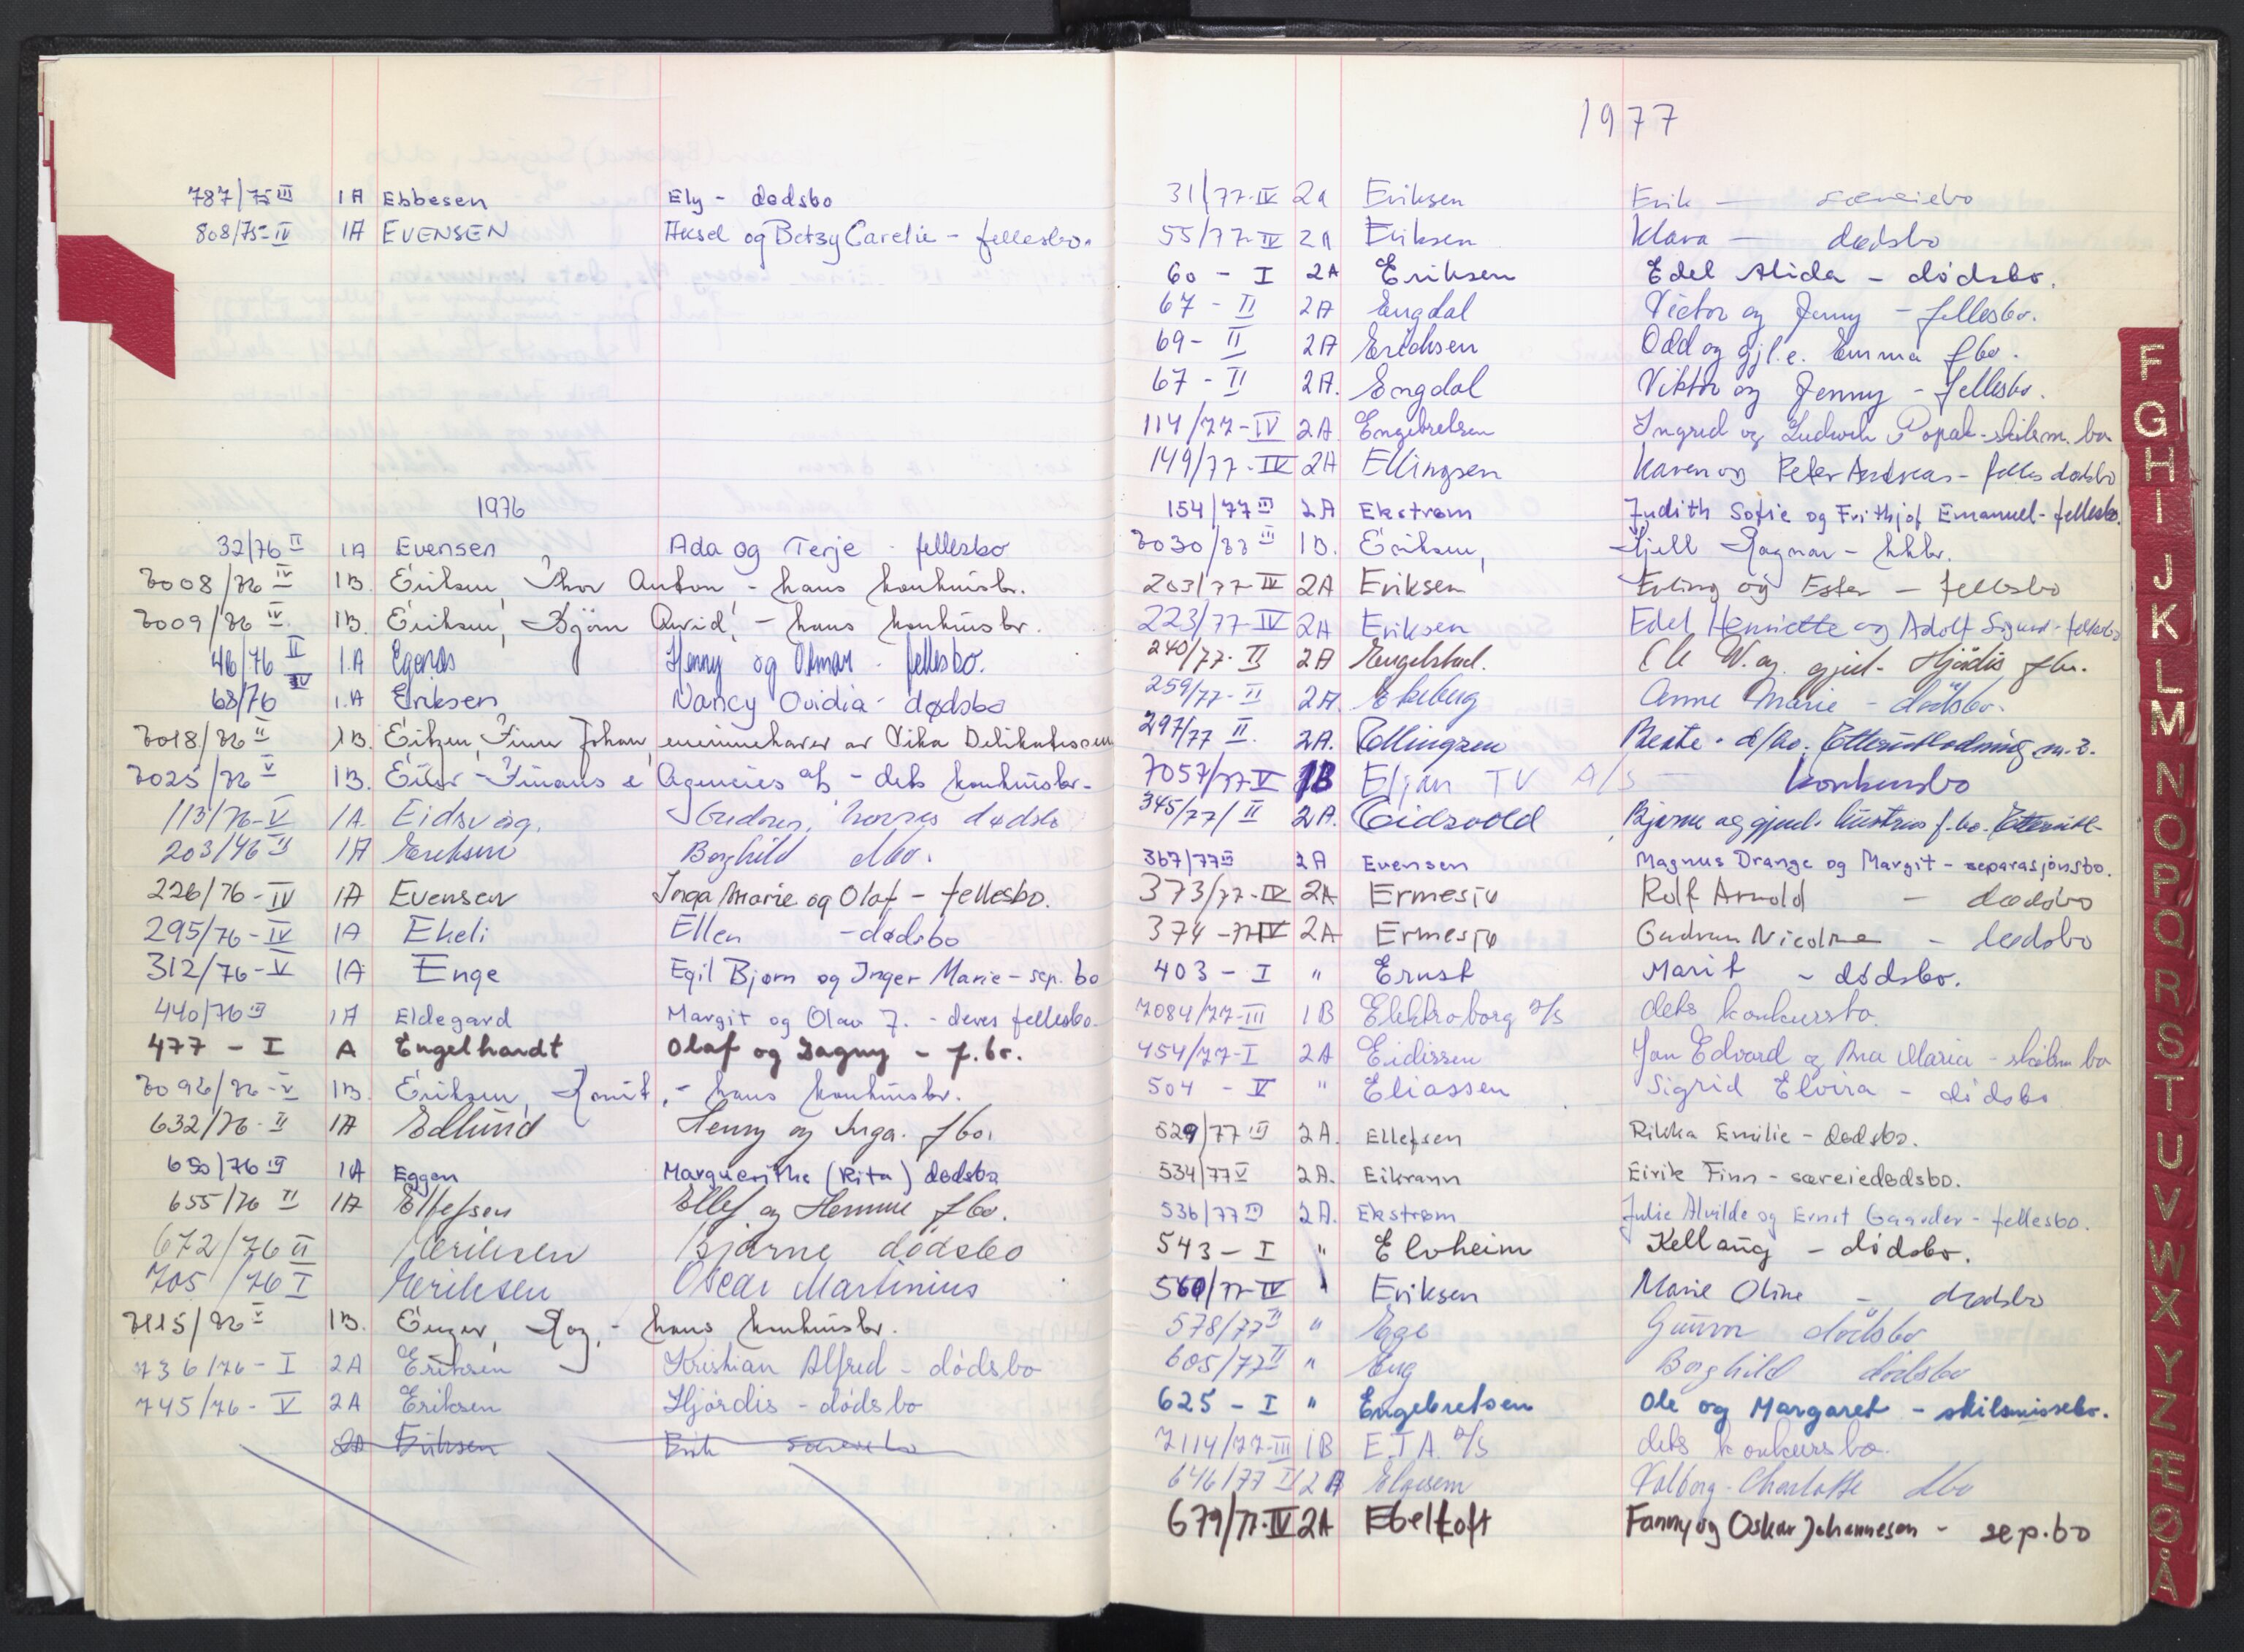 787/75 III 1A Ebbesen Ely - dødsbo
808/75-IV 1A EVENSEN Aksel og Betzy Carelie - fellesbo.
1976
32/76 II 1A Evensen Ada og Terje - fellesbo
7008/76 IV 1B. Eriksen, Thor Anton, - hans konkursbr.
7009/76 IV 1B. Eriksen, Bjørn Arvid, - hans konkursbr.
46/76 II 1.A Egenæs Henny og Otmar - fellesbo.
68/76 IV 1.A Eriksen Nancy Ovidia - dødsbo
7018/76 II 1B. Finn Johan, eneinnehaver av Vika Delikatessen
7025/76 V 1B. - Finans & Agencies - dets konkursbr.
113/76-V 1A. Eidsvåg, Gudrun, dødsbo
203/76 II 1A Eriksen Borghild dbo.
226/76-IV 1A Evensen Inga Marie og Olaf - fellesbo.
295/76-IV 1A Ekeli Ellen - dødsbo
312/76-V 1A Enge Egil Bjørn og Inger Marie - sep. bo
440/76 III 1A Eldegard Margit og Olav J. - deres fellesbo.
477 - I A Engelhardt Olaf og Dagny - f.bo.
7096/76-V 1B. Eriksen, - hans konkursbr.
632/76-II 1A Edlund Henny og Inga. fbo.
650/76 III 1A Eggen Marguerithe (Rita) dødsbo
655/76 II 1A Ellefsen Ellef og fbo.
672/76 II Eriksen Bjarne dødsbo
705/76 I Eriksen Oscar Martinius
7115/76 V 1B. Enger, Roy, - hans konkursbr.
736/76-I 2A Eriksen Kristian Alfred - dødsbo
745/76-V 2A Eriksen Hjørdis - dødsbo
2A Eriksen Erik særeiebo
1977
31/77-IV 2a Eriksen Erik — særeiebo
55/77-IV 2A Eriksen Klara — dødsbo
60 - I 2A Eriksen Edel Alida - dødsbo.
67 - II 2A Engdal Victor og Jenny - fellesbo.
69 - II 2A Erichsen Odd og gjl.e. Emma fbo.
67 - II 2A. Engdal Viktor og Jenny - fellesbo.
114/77-IV 2A Engebretsen Ingrid og Ludwik Popak - skilsm. bo
149/77-IV 2A Ellingsen Karen og Peter Andreas - felles dødsbo
154/77 III 2A Ekstrøm Judith Sofie og Frithjof Emanuel - fellesbo.
7030/77 III 1B. Eriksen, Kjell Ragnar - kkbr.
203/77-IV 2A Eriksen Erling og Ester - fellesbo
223/77-IV 2A Eriksen Edel Henriette og Adolf Sigurd - fellesbo
240/77-II 2A Engelstad. Ole W. og gjenl. Hjördis fbo.
259/77-II 2A. Ekeberg Anne Marie - dødsbo.
297/77 II. 2A. Ellingsen Beate - d/bo. Etterutlodning m.v.
7057/77-V 1B Eljan TV A/S — konkursbo
345/77/II 2A. Eidsvold Bjarne og gjenl. hustrus f.bo.
367/77 III 2A Evensen Magnus Drange og Margit - separasjonsbo.
373/77-IV 2A Ermesjø Rolf Arnold - dødsbo
374-77 IV 2A Ermesjø Gudrun Nicoline - dødsbo
403 - I " Ernst Marit - dødsbo.
7084/77-III 1B Elektroborg A/S dets konkursbo.
454/77-I 2A Eidissen Jan Edvard og Ana Maria - skilsm bo
504 - V " Eliassen Sigrid Elvira - dødsbo
529/77 III 2A. Ellefsen Rikka Emilie - dødsbo.
534/77 V 2A. Eikrann Eirik Finn - særeiedødsbo.
536/77 III 2A. Ekstrøm Julie Alvilde og Ernst Gaarder - fellesbo.
543 - I " Elvheim Kellaug - dødsbo.
560/77-IV " Eriksen Marie Oline - dødsbo
578/77 II " Ege Gunvor dødsbo
605/77 II " Eng Borghild dødsbo
625 - I " Engebretsen Ole og Margaret - skilsmissebo.
7114/77-III 1B E.T.A. A/S dets konkursbo.
646/77 II 2A Elgesem Valborg-Charlotte dbo
679/77-IV 2A Ebeltoft Fanny og Oskar Johannesen - sep.bo
F
G
H
I
J
K
L
M
N
O
P
Q
R
S
T
U
V
W
X
Y
Z
Æ
Ø
Å